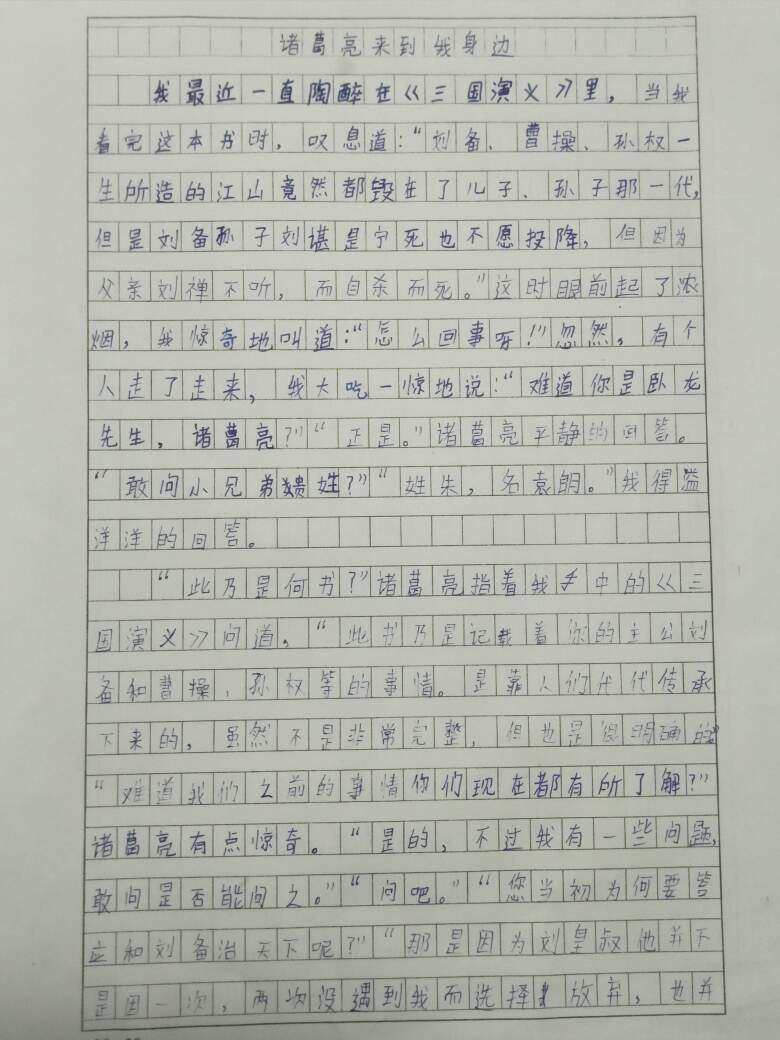 诸葛亮来到我身边
我最近一直陶醉在《三国演义》里，当我
看完这本书时，叹息道：“刘备、曹操、孙权一
生所造的江山竟然都毁在了儿子、孙子那一代，
但是刘备孙子刘谌是宁死也不愿投降，但因为
父亲刘禅不听，而自杀而死。”这时眼前起了浓
烟，我惊奇地叫道：“怎么回事呀！”忽然，有个
人走了走来，我大吃一惊地说：“难道你是卧龙
先生，诸葛亮？”“正是。”诸葛亮平静的回答。
“敢问小兄弟贵姓？”“姓朱，名袁朗。”我得溢
洋洋的回答。
“此乃是何书？”诸葛亮指着我手中的《三
国演义》问道，“此书乃是记载着你的主公刘
备和曹操、孙权等的事情。是靠人们代代传承
下来的，虽然不是非常完整，但也是很明确的”
“难道我们之前的事情你们现在都有所了解？”
诸葛亮有点惊奇。“是的，不过我有一些问题，
敢问是否能问之。”“问吧。”“您当初为何要答
应和刘备治天下呢？”“那是因为刘皇叔他并不
是因一次，两次没遇到我而选择放弃，也并